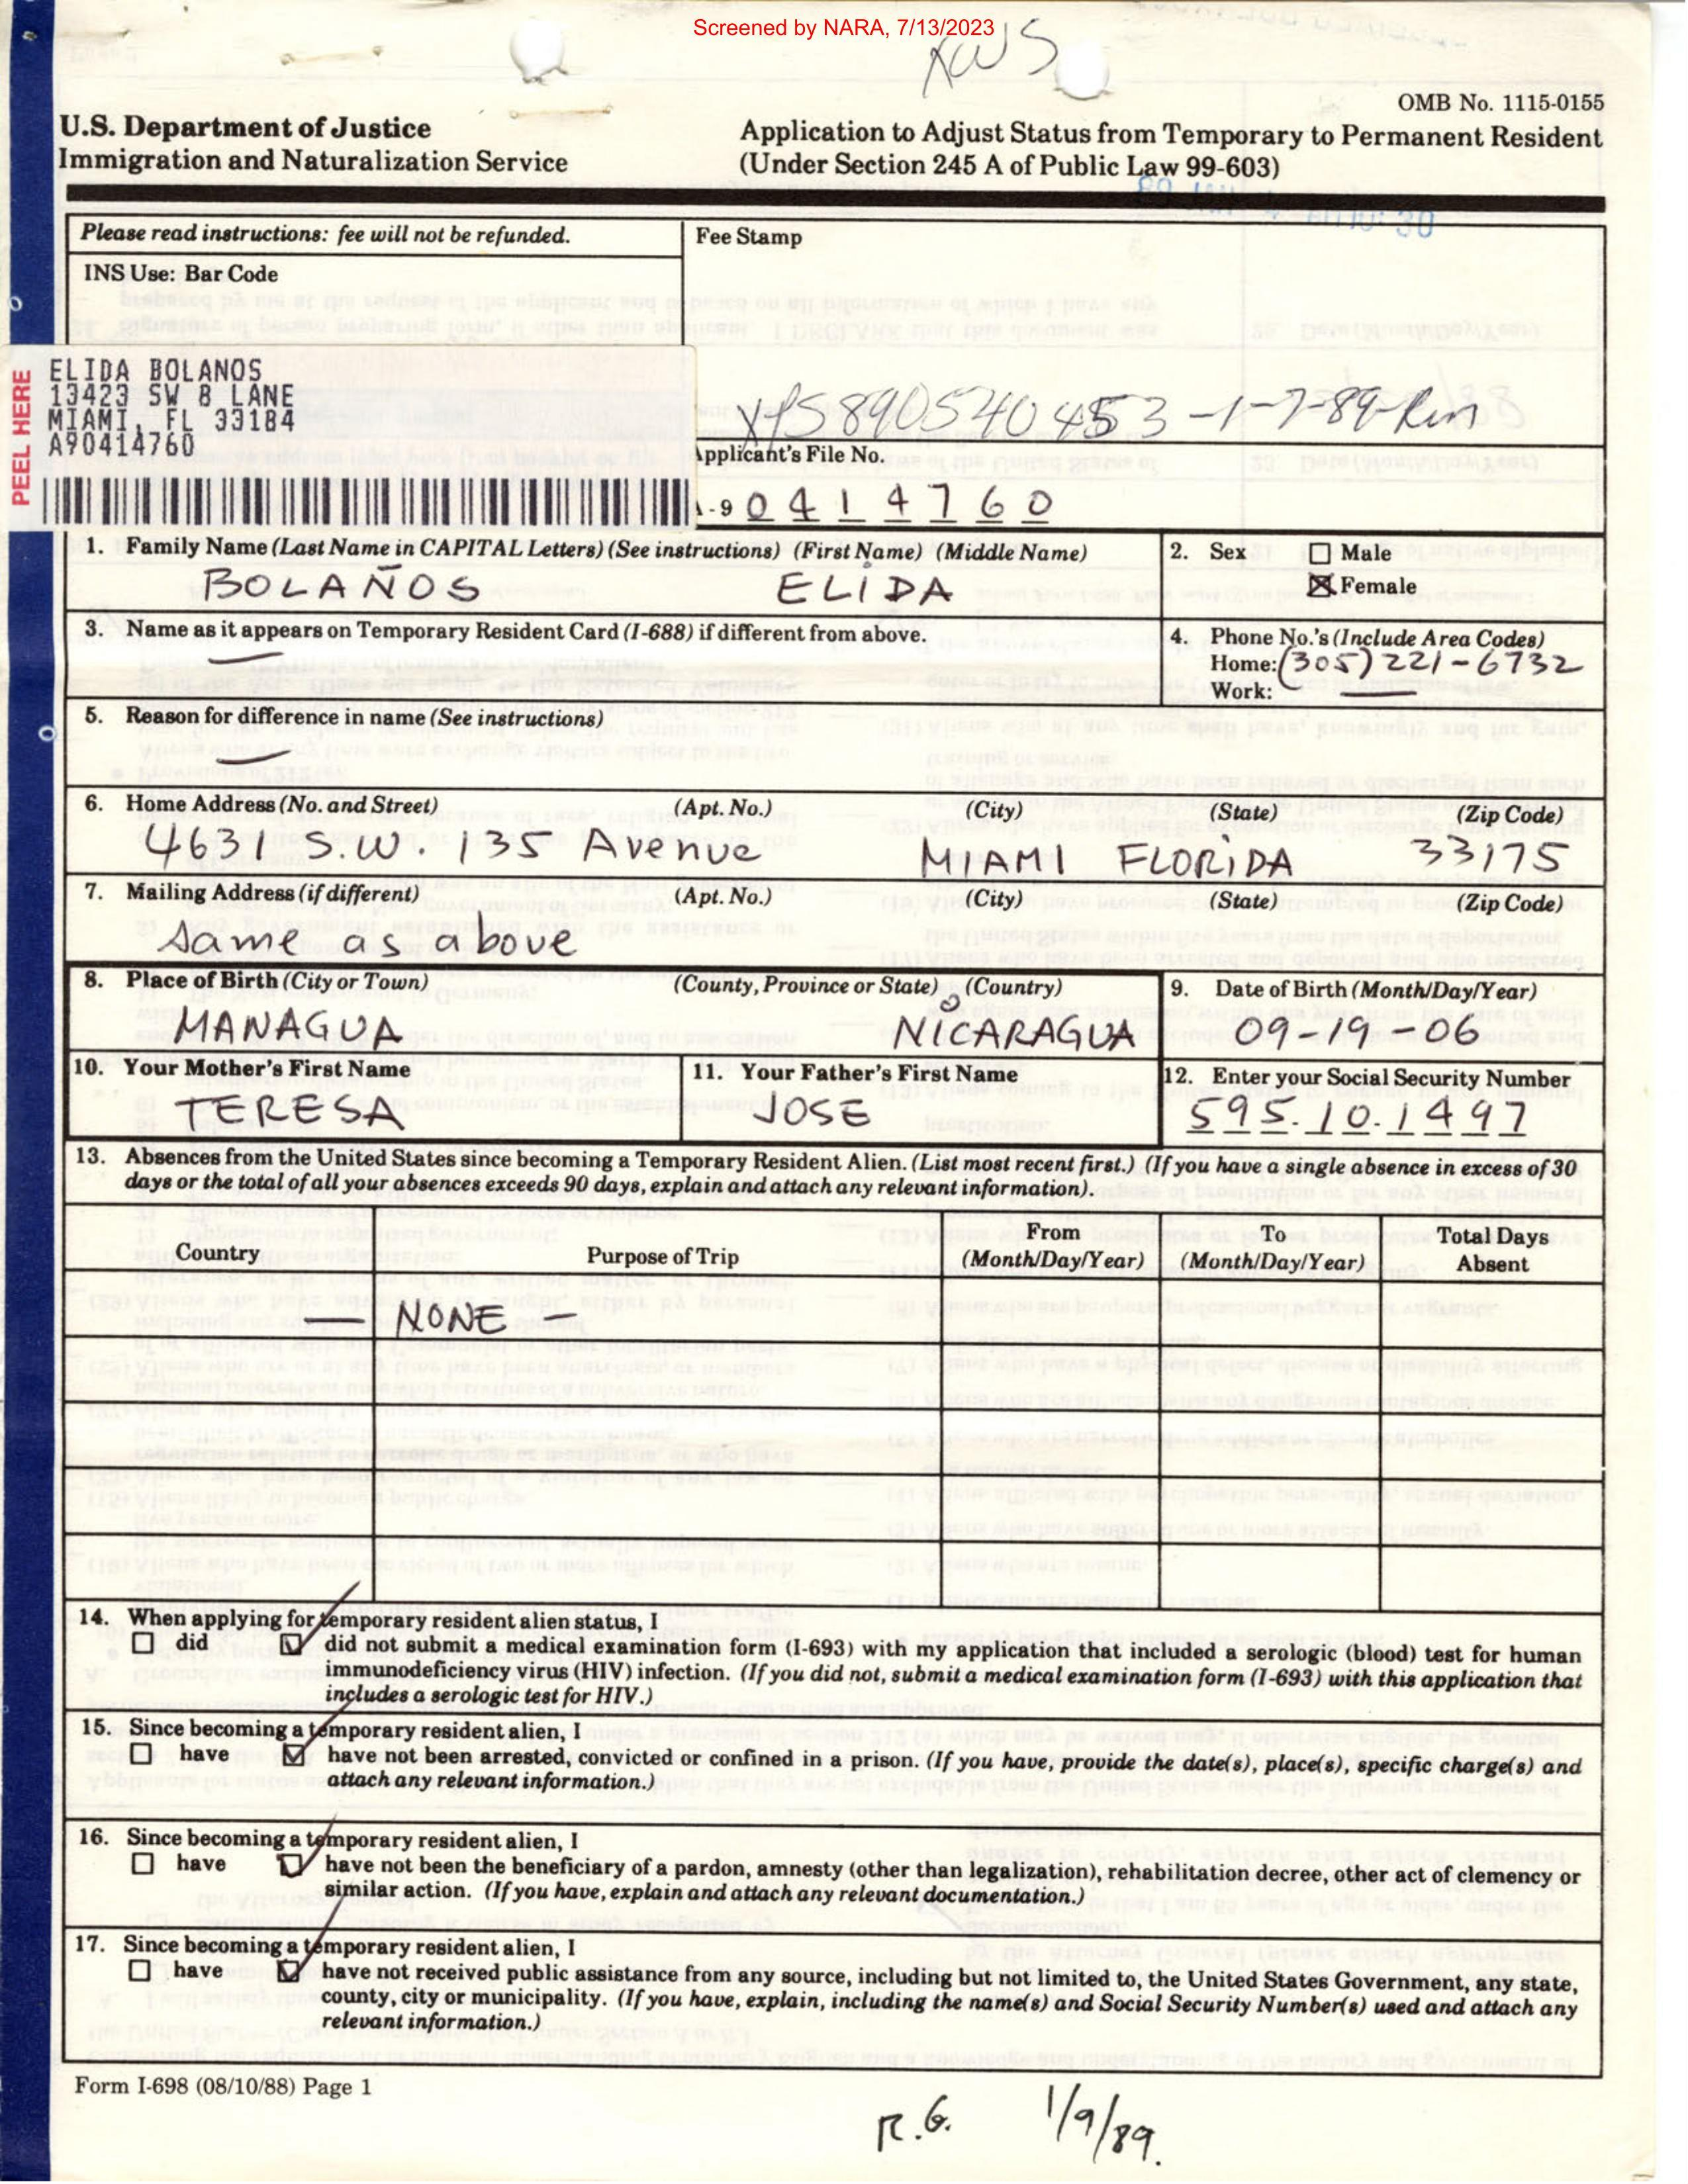 Screened by NARA, 7/13/2023
OMB No. 1115-0155
U.S. Department of Justice
Immigration and Naturalization Service
Application to Adjust Status from Temporary to Permanent Resident
(Under Section 245 A of Public Law 99-603)
Please read instructions: fee will not be refunded.
Fee Stamp
INS Use: Bar Code
PEEL HERE
ELIDA BOLANOS
13423 SW 8 LANE
MIAMI, FL 33184
A90414760
Applicant's File No.
-9 0 4 1 4 7 6 0
1. Family Name (Last Name in CAPITAL Letters) (See instructions) (First Name) (Middle Name)
BOLAÑOS ELIDA
2. Sex Male
Female
3. Name as it appears on Temporary Resident Card (I-688) if different from above.
—
4. Phone No.'s (Include Area Codes)
Home: (305) 221-6732
Work: —
5. Reason for difference in name (See instructions)
—
6. Home Address (No. and Street) (Apt. No.) (City) (State) (Zip Code)
4631 S.W. 135 Avenue MIAMI FLORIDA 33175
7. Mailing Address (if different) (Apt. No.) (City) (State) (Zip Code)
same as above
8. Place of Birth (City or Town) (County, Province or State) (Country)
MANAGUA NICARAGUA
9. Date of Birth (Month/Day/Year)
09-19-06
10. Your Mother's First Name
TERESA
11. Your Father's First Name
JOSE
12. Enter your Social Security Number
595.10.1497
13. Absences from the United States since becoming a Temporary Resident Alien. (List most recent first.) (If you have a single absence in excess of 30
days or the total of all your absences exceeds 90 days, explain and attach any relevant information).
Country Purpose of Trip From (Month/Day/Year) To (Month/Day/Year) Total Days Absent
— NONE —
14. When applying for temporary resident alien status, I
did did not submit a medical examination form (I-693) with my application that included a serologic (blood) test for human
immunodeficiency virus (HIV) infection. (If you did not, submit a medical examination form (I-693) with this application that
includes a serologic test for HIV.)
15. Since becoming a temporary resident alien, I
have have not been arrested, convicted or confined in a prison. (If you have, provide the date(s), place(s), specific charge(s) and
attach any relevant information.)
16. Since becoming a temporary resident alien, I
have have not been the beneficiary of a pardon, amnesty (other than legalization), rehabilitation decree, other act of clemency or
similar action. (If you have, explain and attach any relevant documentation.)
17. Since becoming a temporary resident alien, I
have have not received public assistance from any source, including but not limited to, the United States Government, any state,
county, city or municipality. (If you have, explain, including the name(s) and Social Security Number(s) used and attach any
relevant information.)
Form I-698 (08/10/88) Page 1
R.G. 1/9/89.